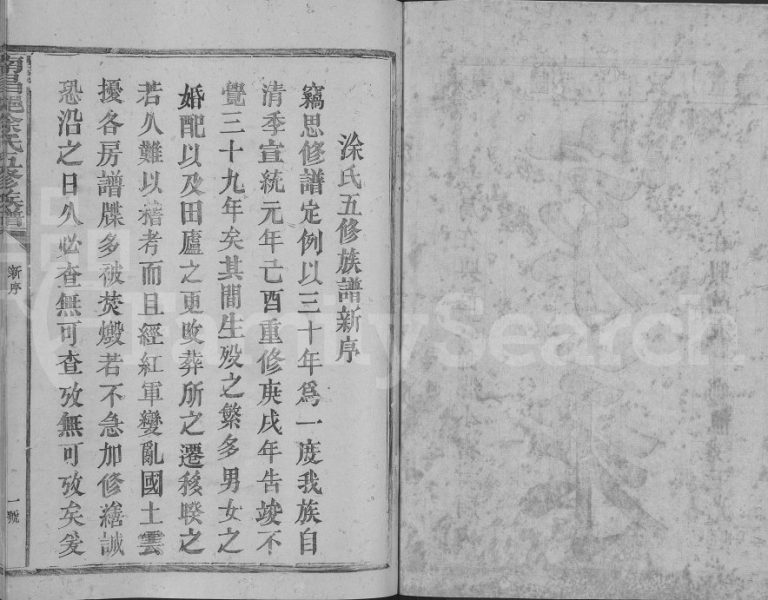 涂氏五修族譜新序
竊思修譜定例以三十年爲一度我族自
清季宣統元年己酉重修庚戌年告竣不
覺三十九年矣其間生殁之繁多男女之
婚配以及田廬之更改葬所之遷移暌之
若久難以稽考而且經紅軍變亂國土雲
擾各房譜牒多被焚燬若不急加修繕誠
恐沿之日久必查無可查攷無可攷矣爰
氏五修族譜
新序
一號
FamilySearch